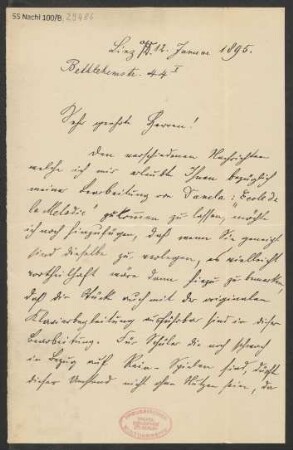 SS Nachl 100/B,
Linz a/D. 12. Januar 1895.
Bethlehemstr. 44 I
Sehr geehrte Herren!
Den verschiedenen Nachrichten
welche ich mir erlaubte Ihnen bezüglich
meiner Bearbeitung von Dancla: Ecole de
la Melodie zukommen zu lassen, möcht
ich noch hinzufügen, daß wenn Sie geneigt
sind dieselbe zu verlegen, es vielleicht
vortheilhaft wäre dann hinzu zu bemerken,
daß die Stücke auch mit der originalen
Klavierbegleitung ausführbar sind in dieser
Bearbeitung. Für Schüler die noch schwach
in Bezug auf Rein-Spielen sind, dürfte
dieser Umstand nicht ohne Nutzen sein, da